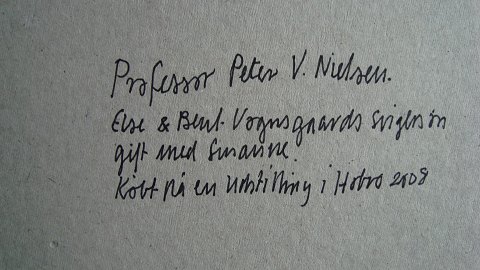 Professor Peter V. Nielsen.
Else & Bent Vognsgaards Svigersøn
gift med Susanne.
Købt på en Udstilling i Hobro 2008